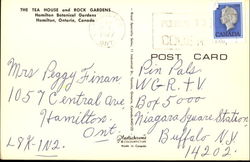 THE TEA HOUSE and ROCK GARDENS
Hamilton Botanical Gardens
Hamilton, Ontario, Canada
POST CARD
Mrs Peggy Finan
1057 Central ave
Hamilton.
Ont.
L8K-1N2.
Pin Pals
WGR-TV
Box 5000
Niagara Square Station
Buffalo N.Y
14202.